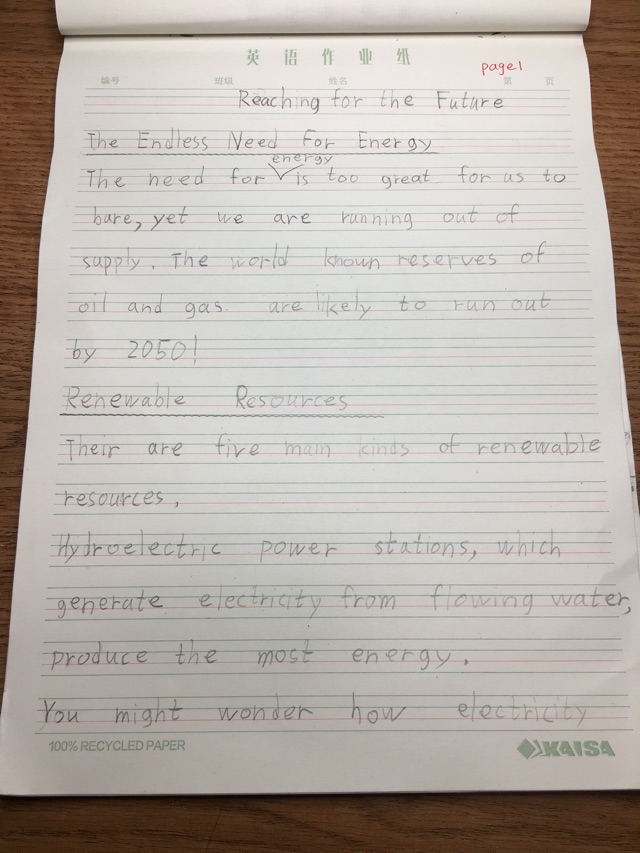 英语作业纸
page1
编号 班级 姓名 第 页
Reaching for the Future
The Endless Need For Energy
energy
The need for is too great for us to
bare, yet we are running out of
supply. The world known reserves of
oil and gas are likely to run out
by 2050!
Renewable Resources
Their are five main kinds of renewable
resources.
Hydroelectric power stations, which
generate electricity from flowing water,
produce the most energy.
You might wonder how electricity
100% RECYCLED PAPER
KAISA